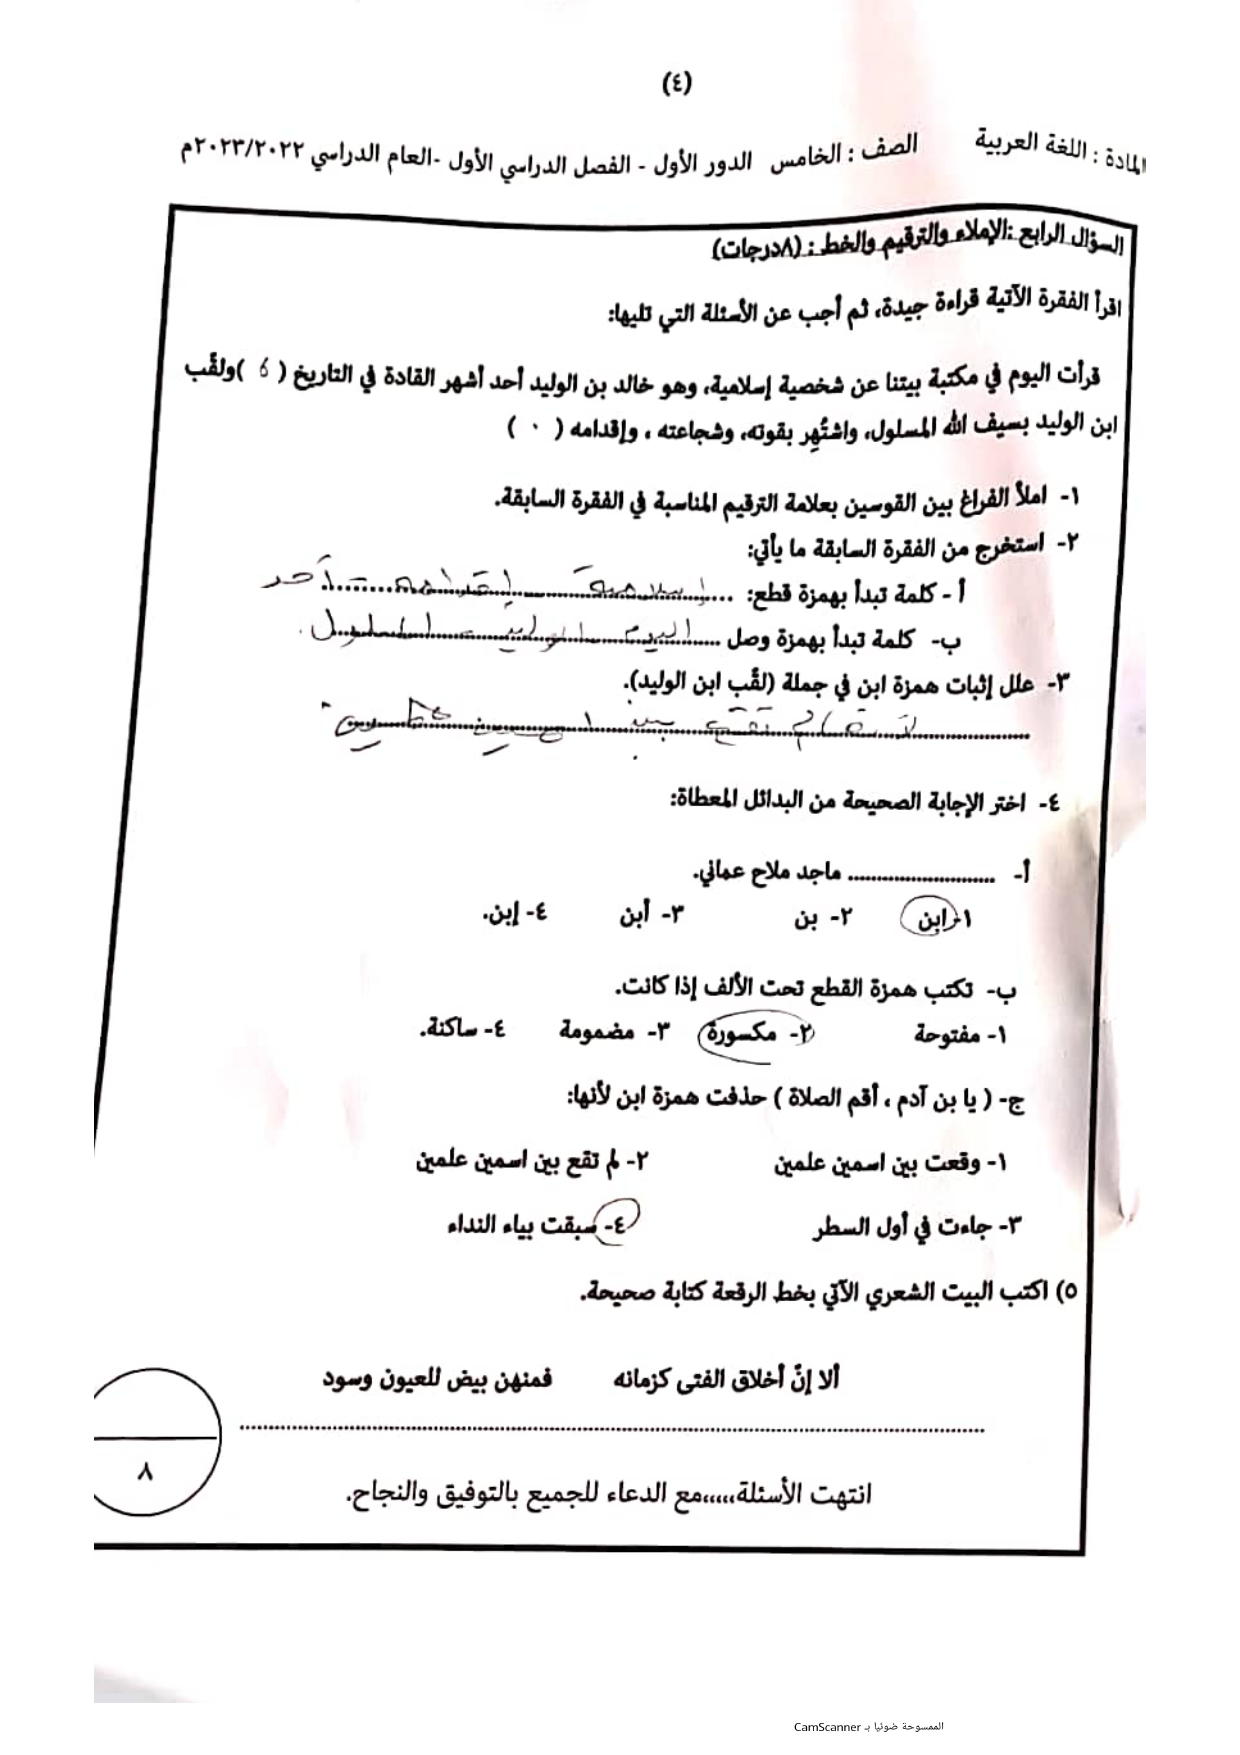 (٤)
المادة : اللغة العربية الصف : الخامس الدور الأول - الفصل الدراسي الأول -العام الدراسي ٢٠٢٣/٢٠٢٢م
السؤال الرابع :الإملاء والترقيم والخط : (٨درجات)
اقرأ الفقرة الآتية قراءة جيدة، ثم أجب عن الأسئلة التي تليها:
قرأت اليوم في مكتبة بيتنا عن شخصية إسلامية، وهو خالد بن الوليد أحد أشهر القادة في التاريخ ( ، )ولقَّب
ابن الوليد بسيف الله المسلول، واشتُهِر بقوته، وشجاعته ، وإقدامه ( . )
١- املأ الفراغ بين القوسين بعلامة الترقيم المناسبة في الفقرة السابقة.
٢- استخرج من الفقرة السابقة ما يأتي:
أ - كلمة تبدأ بهمزة قطع: إسلامية - إقدامه - أحد
ب- كلمة تبدأ بهمزة وصل اليوم - الوليد - المسلول.
٣- علل إثبات همزة ابن في جملة (لقَّب ابن الوليد).
لأنها لم تقع بين اسمين علمين
٤- اختر الإجابة الصحيحة من البدائل المعطاة:
أ- .......................... ماجد ملاح عماني.
١- ابن ٢- بن ٣- أبن ٤- إبن.
ب- تكتب همزة القطع تحت الألف إذا كانت.
١- مفتوحة ٢- مكسورة ٣- مضمومة ٤- ساكنة.
ج- ( يا بن آدم ، أقم الصلاة ) حذفت همزة ابن لأنها:
١- وقعت بين اسمين علمين ٢- لم تقع بين اسمين علمين
٣- جاءت في أول السطر ٤- سبقت بياء النداء
٥) اكتب البيت الشعري الآتي بخط الرقعة كتابة صحيحة.
ألا إنّ أخلاق الفتى كزمانه فمنهن بيض للعيون وسود
٨
انتهت الأسئلة،،،،،مع الدعاء للجميع بالتوفيق والنجاح.
الممسوحة ضوئيا بـ CamScanner